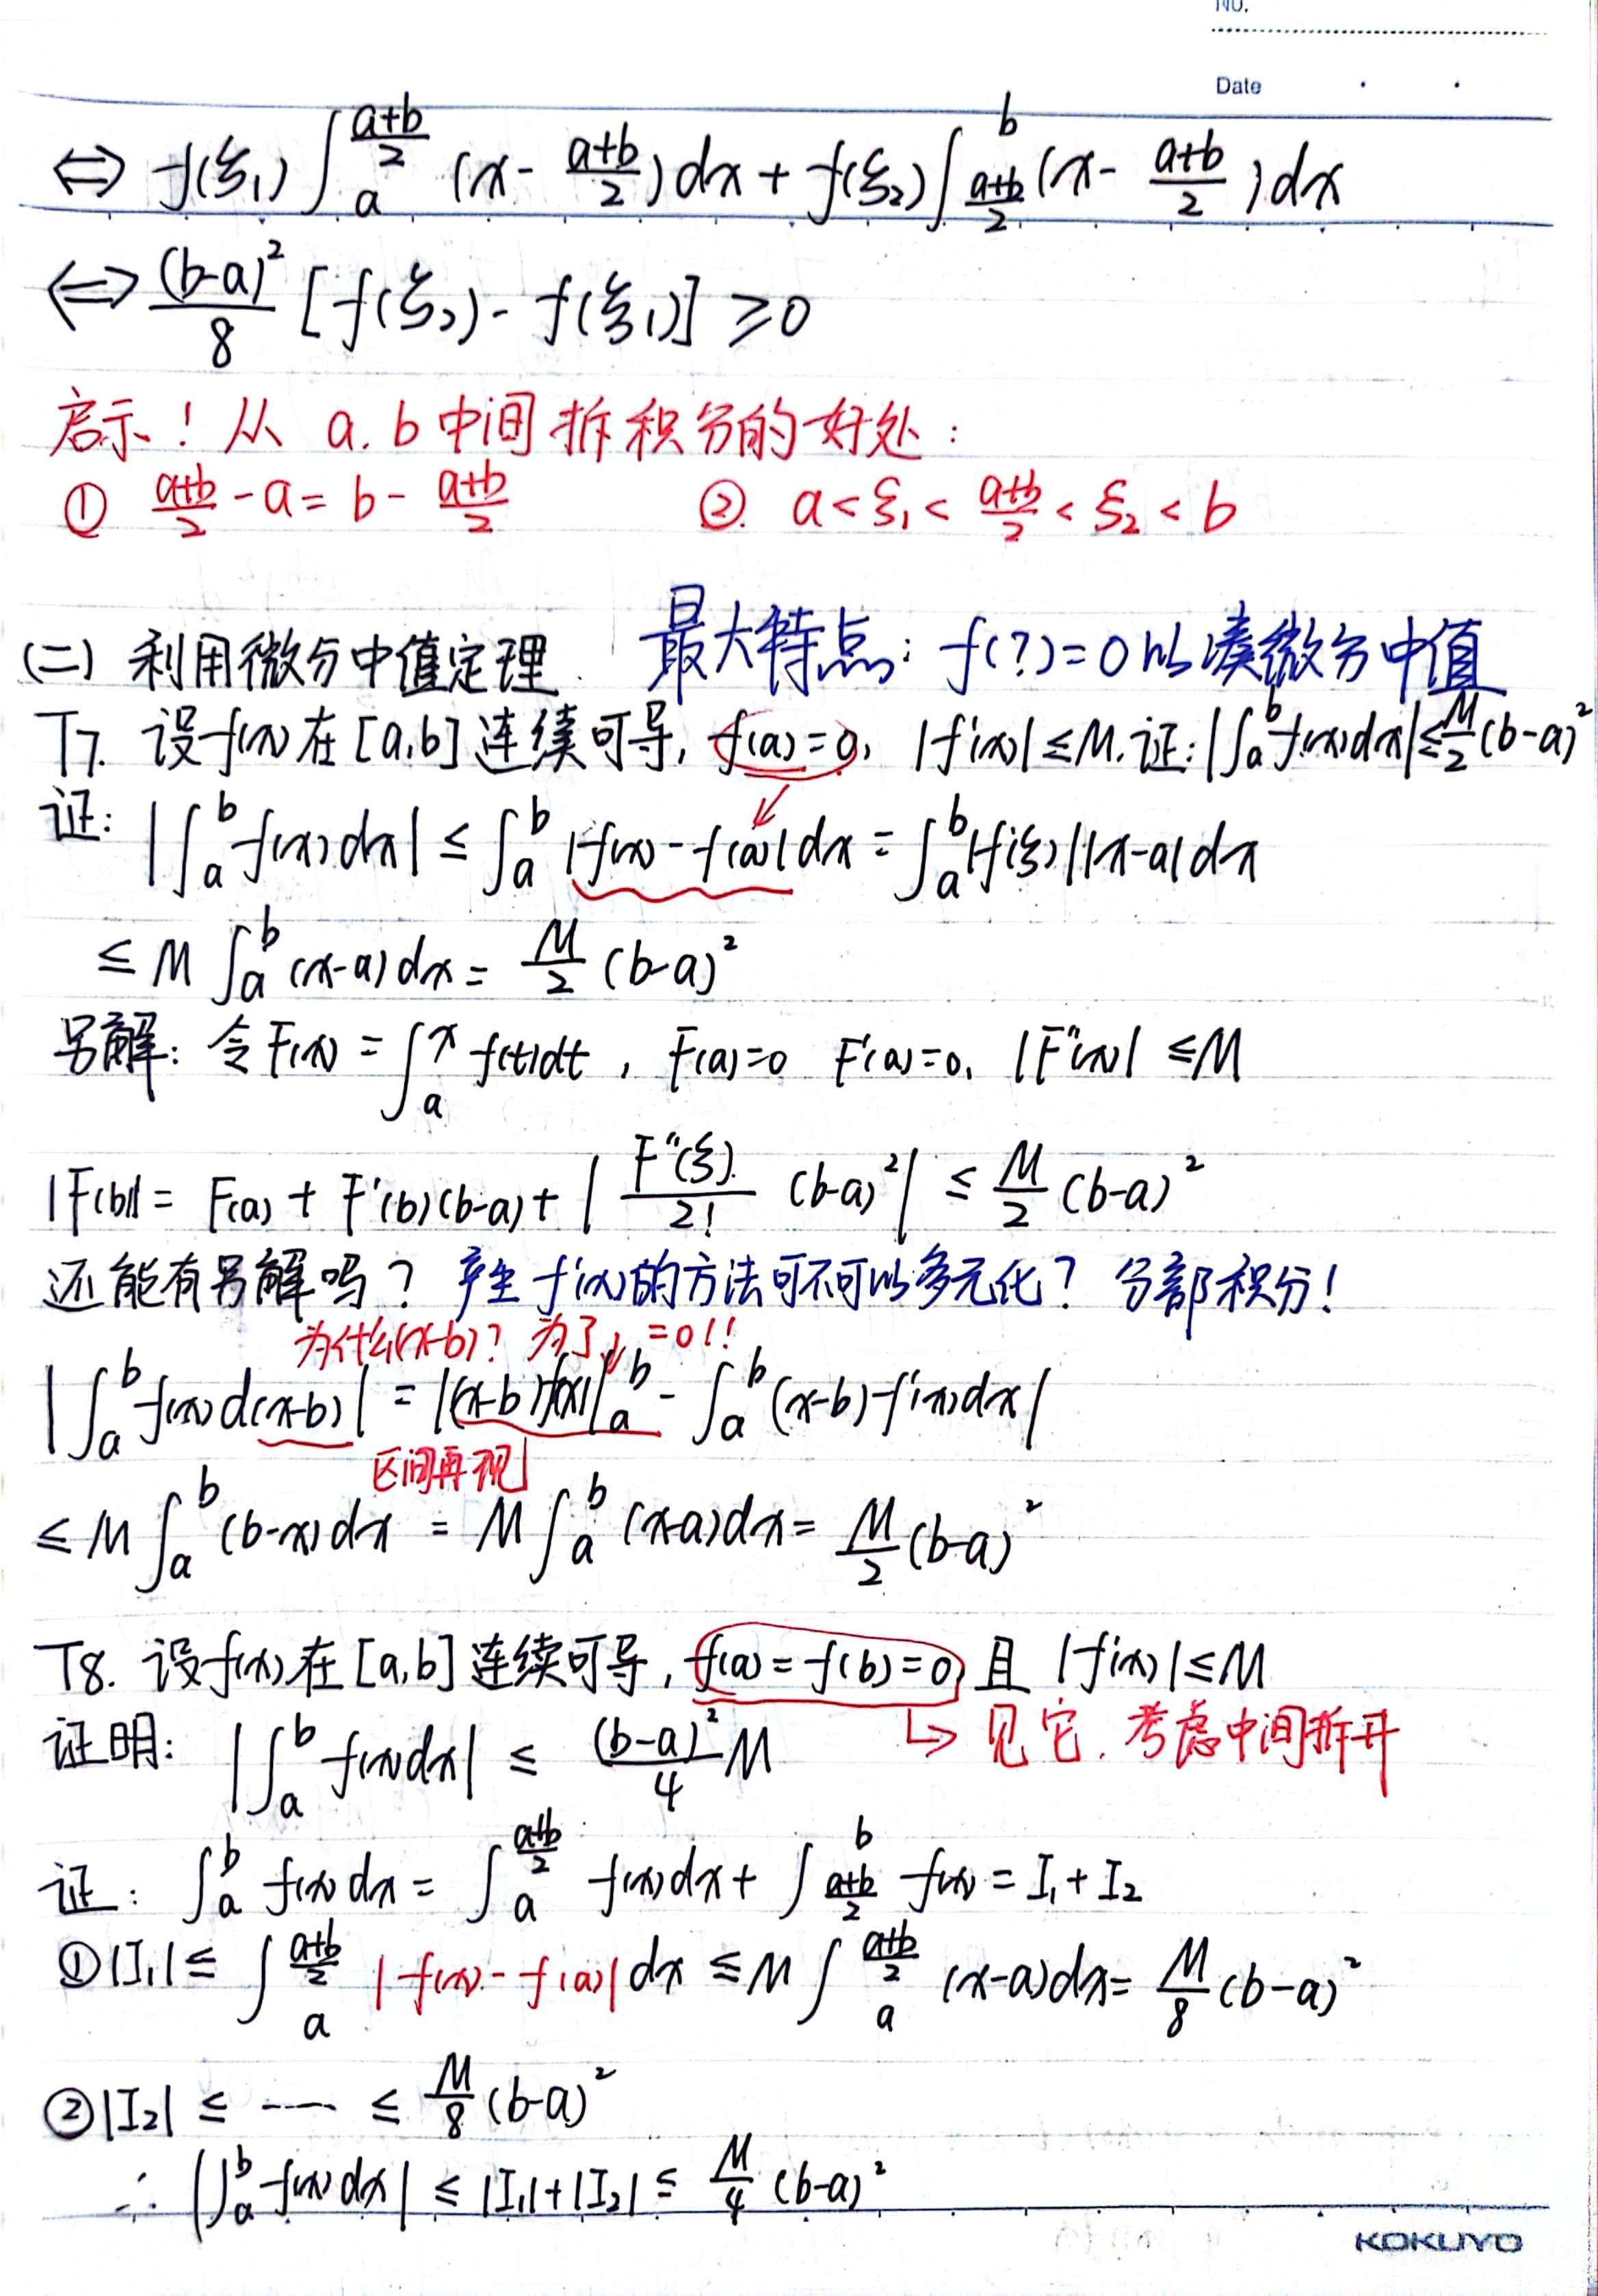 NO.
Date
⇔ f(ξ₁)∫_a^{\frac{a+b}{2}} (x-\frac{a+b}{2})dx + f(ξ₂)∫_{\frac{a+b}{2}}^b (x-\frac{a+b}{2})dx
⇔ \frac{(b-a)^2}{8} [f(ξ₂)-f(ξ₁)] ≥0
启示！从 a.b中间拆积分的好处：
① \frac{a+b}{2}-a=b-\frac{a+b}{2} ② a<ξ₁<\frac{a+b}{2}<ξ₂<b
(二) 利用微分中值定理. 最大特点：f(?)=0以凑微分中值
T7. 设f(x)在[a,b]连续可导, f(a)=0, |f'(x)|≤M.证:|∫_a^b f(x)dx|≤\frac{M}{2}(b-a)^2
证: |∫_a^b f(x)dx| ≤ ∫_a^b |f(x)-f(a)|dx = ∫_a^b |f'(ξ)||x-a|dx
≤ M ∫_a^b (x-a)dx = \frac{M}{2}(b-a)^2
另解: 令F(x) = ∫_a^x f(t)dt , F(a)=0 F'(a)=0, |F''(x)| ≤M
|F(b)| = F(a) + F'(b)(b-a) + |\frac{F''(ξ)}{2!}(b-a)^2| ≤ \frac{M}{2}(b-a)^2
还能有另解吗？产生f'(x)的方法可不可以多元化？分部积分！
为什么(x-b)？为了↓=0!!
|∫_a^b f(x)d(x-b)| = |(x-b)f(x)|_a^b - ∫_a^b (x-b)f'(x)dx|
区间再现
≤ M∫_a^b (b-x)dx = M∫_a^b (x-a)dx = \frac{M}{2}(b-a)^2
T8. 设f(x)在[a,b]连续可导, f(a)=f(b)=0, 且 |f'(x)|≤M
↳ 见它, 考虑中间拆开
证明: |∫_a^b f(x)dx| ≤ \frac{(b-a)^2}{4}M
证: ∫_a^b f(x)dx = ∫_a^{\frac{a+b}{2}} f(x)dx + ∫_{\frac{a+b}{2}}^b f(x) = I₁+I₂
①|I₁|≤ ∫_a^{\frac{a+b}{2}} |f(x)-f(a)|dx ≤M∫_a^{\frac{a+b}{2}} (x-a)dx= \frac{M}{8}(b-a)^2
②|I₂| ≤ …… ≤ \frac{M}{8}(b-a)^2
∴ |∫_a^b f(x)dx| ≤ |I₁|+|I₂| ≤ \frac{M}{4}(b-a)^2
KOKUYO